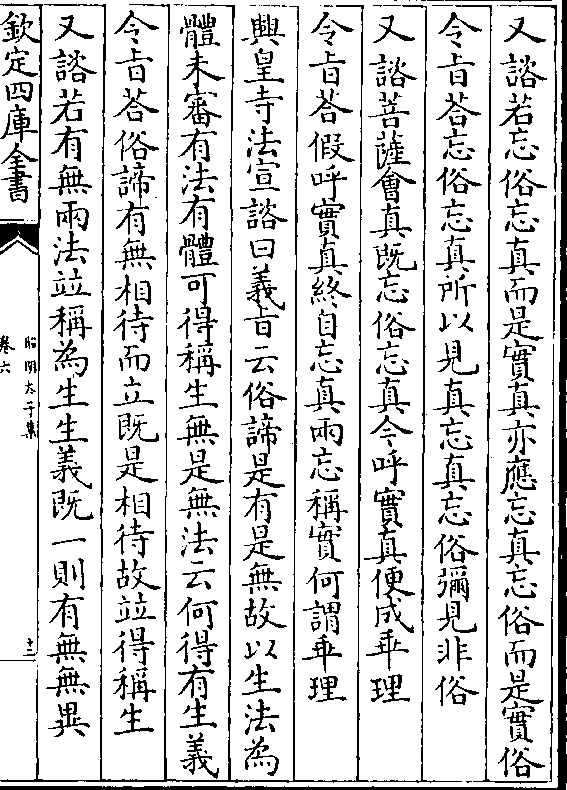 又諮若忘俗忘真而是實真亦應忘真忘俗而是實俗
令旨荅忘俗忘真所以見真忘真忘俗彌見非俗
又諮菩薩會真既忘俗忘真今呼實真便成乖理
令旨荅假呼實真終自忘真兩忘稱實何謂乖理
興皇寺法宣諮曰義旨云俗諦是有是無故以生法為
體未審有法有體可得稱生無是無法云何得有生義
令旨荅俗諦有無相待而立既是相待故竝得稱生
又諮若有無兩法竝稱為生生義既一則有無無異
欽定四庫全書
昭明太子集
卷六
十二